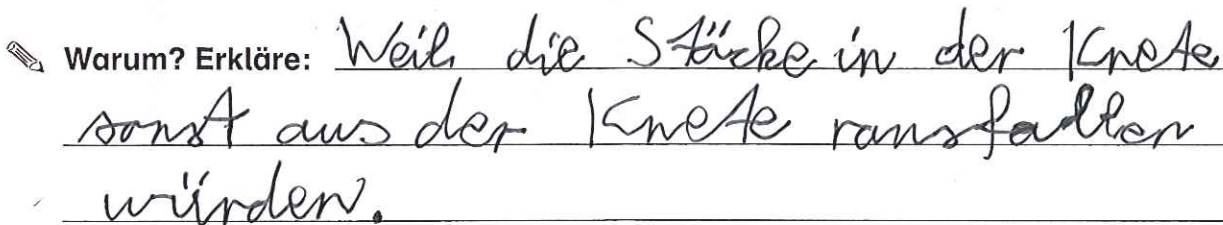 Warum? Erkläre: Weil die Stäcke in der Knete
sonst aus der Knete rausfallen
würden.